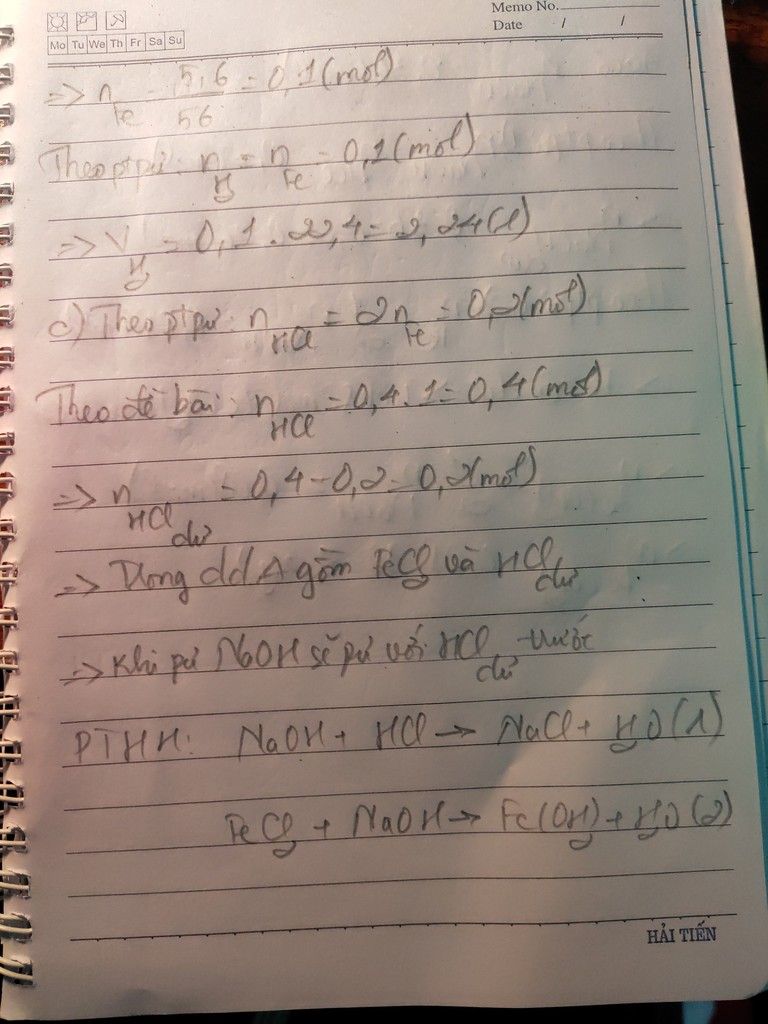 Memo No.
Date / /
Mo Tu We Th Fr Sa Su
=> n Fe = 5,6/56 = 0,1(mol)
Theo ptpư: n H2 = n Fe = 0,1(mol)
=> V H2 = 0,1 . 22,4 = 2,24(l)
c) Theo ptpư: n HCl = 2n Fe = 0,2(mol)
Theo đề bài: n HCl = 0,4 . 1 = 0,4(mol)
=> n HCl dư = 0,4 - 0,2 = 0,2(mol)
=> Trong dd A gồm FeCl2 và HCl dư
=> Khi pư NaOH sẽ pư với HCl dư trước
PTHH: NaOH + HCl -> NaCl + H2O (1)
FeCl2 + NaOH -> Fe(OH)2 + H2O (2)
HẢI TIẾN